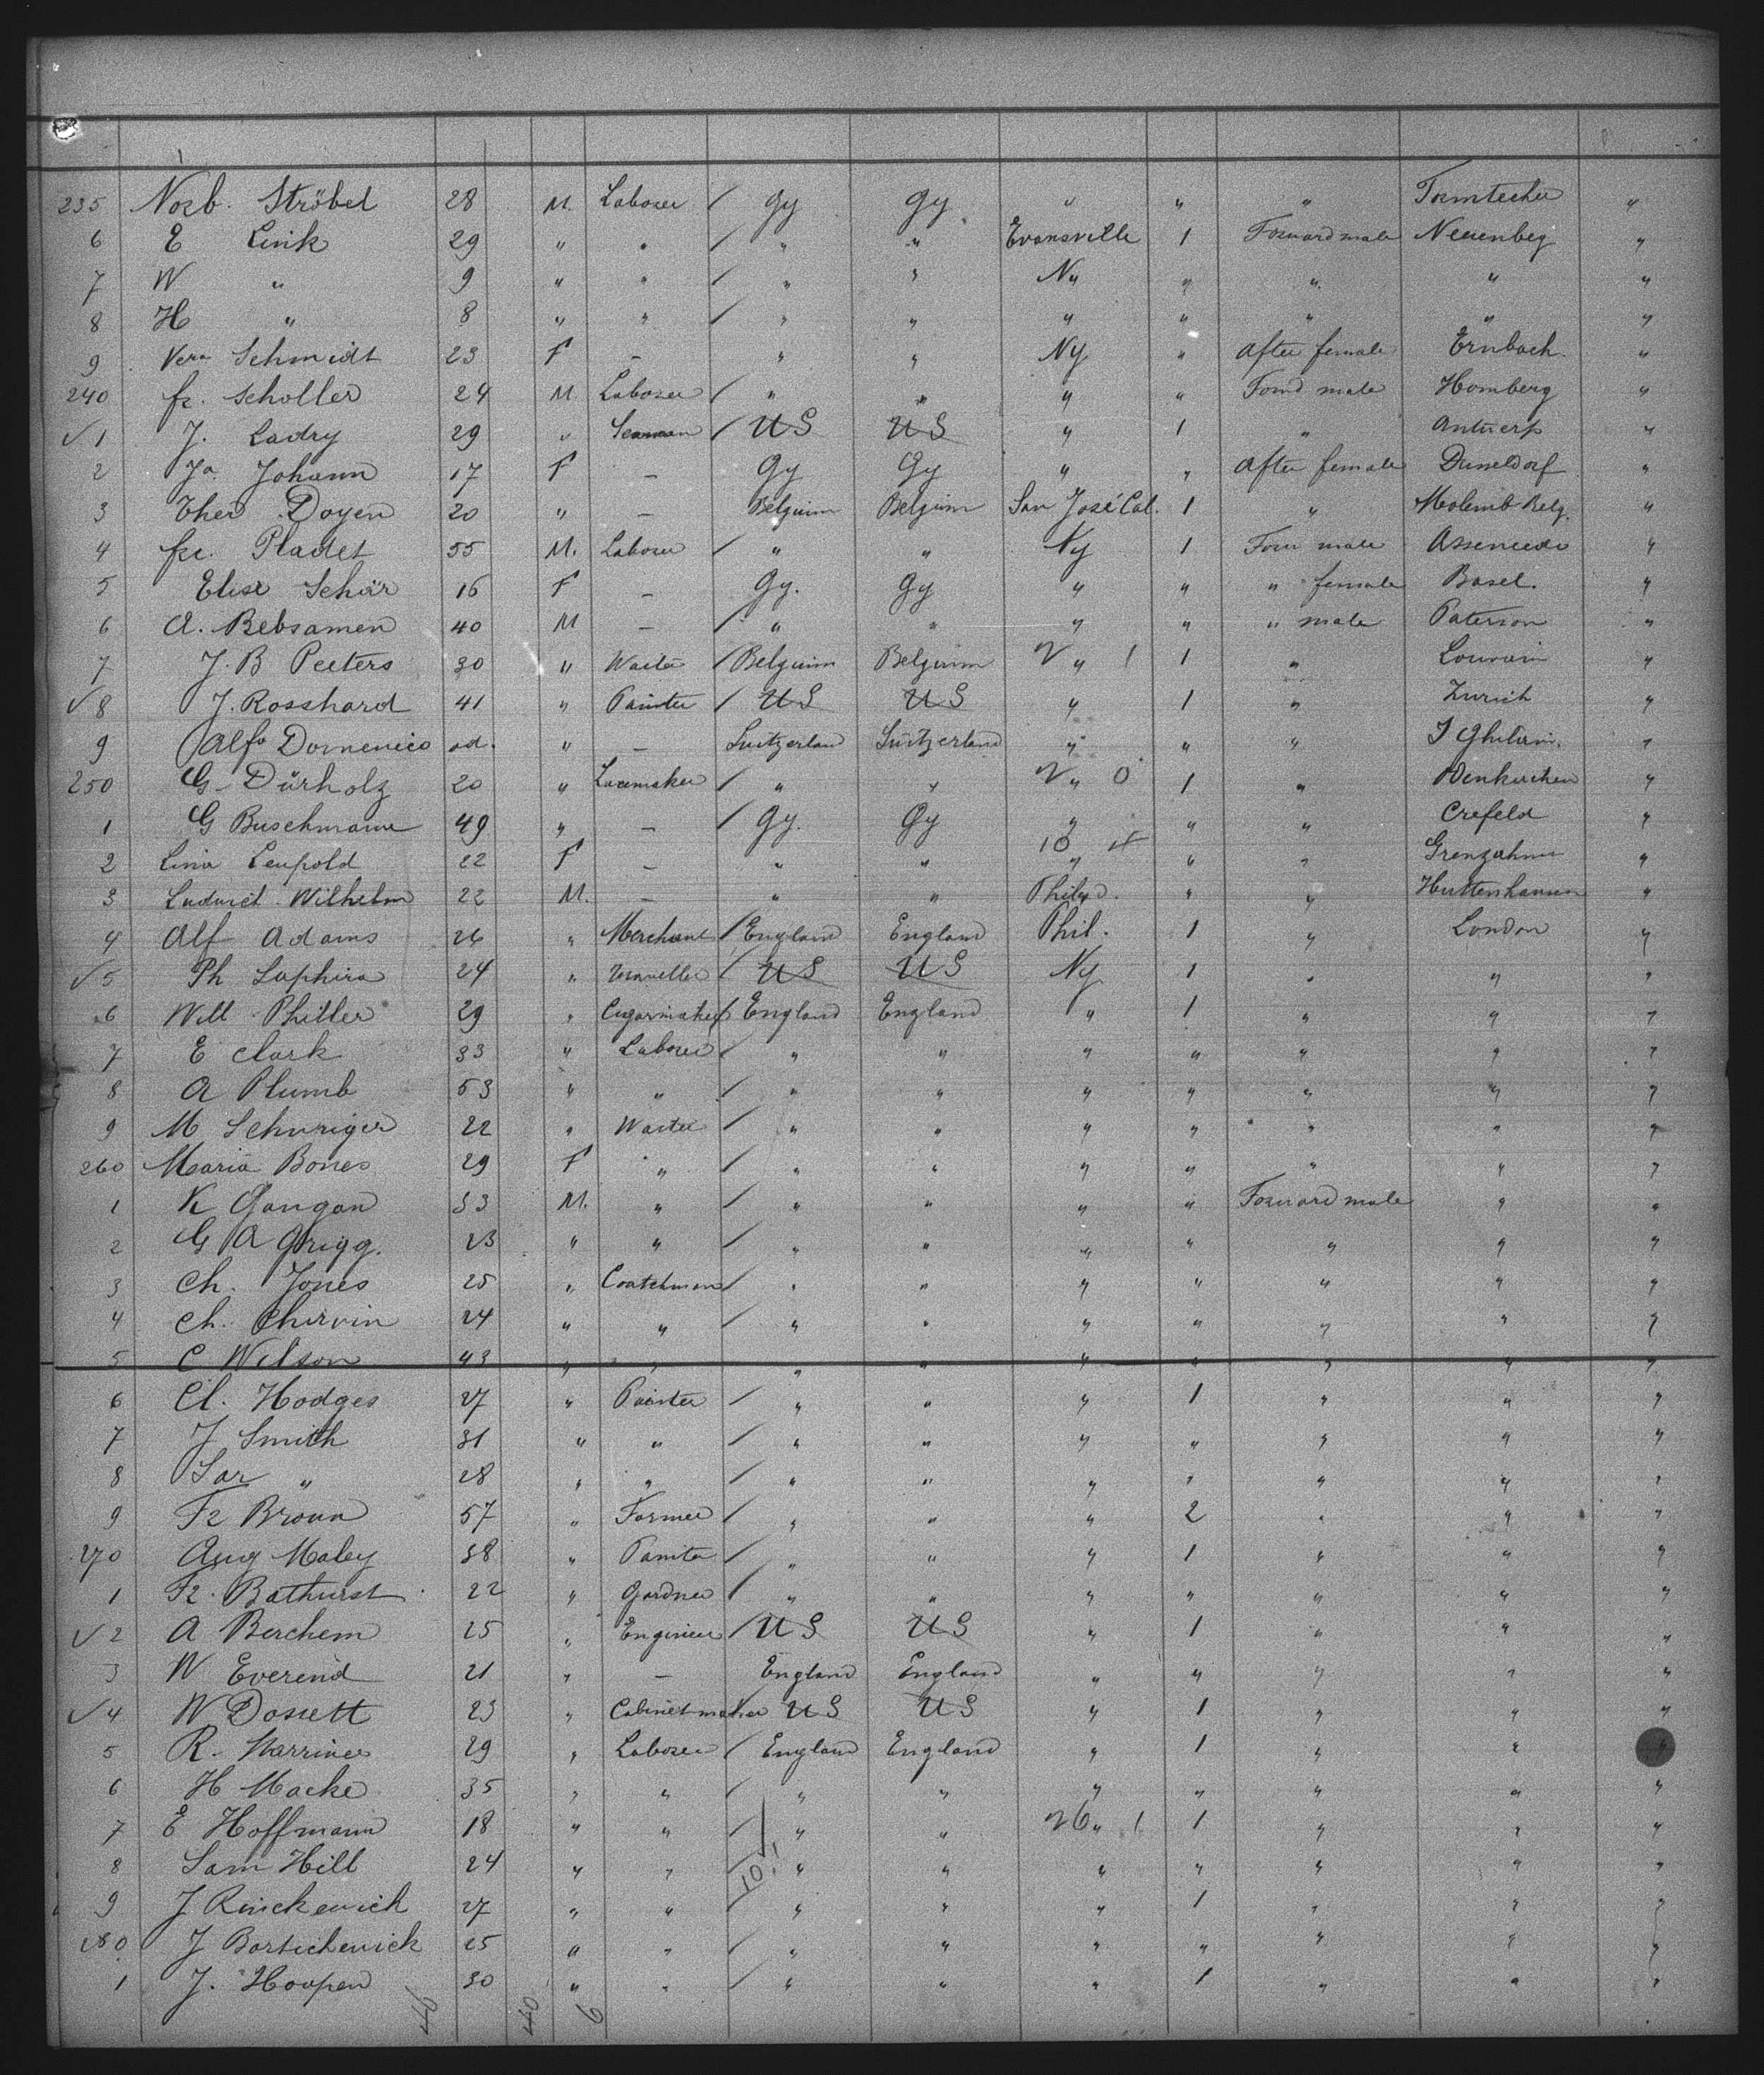 235 Norb. Ströbel 28 M. Laborer / Gy Gy. " " " "
6 E Link 29 " " / " " Evansville 1 Forward male Neuenbeg "
7 W " 9 " " / " " Ny " " " "
8 H " 8 " " / " " " " " " "
9 Vera Schmidt 23 F – " " Ny " After female Ernbach. "
240 fr. Scholler 24 M. Laborer / " " " " Forwd male Homberg "
√1 J. Ladry 29 " Seaman / US US " 1 " Antwerp "
2 Ja. Johann 17 F – Gy Gy " " After female Dusseldorf "
3 Ther Doyen 20 " – Belgium Belgium San José Cal. 1 " Belg. "
4 fr. Pladet 55 M. Laborer / " " Ny 1 Forw male "
5 Elise Schär 16 F – Gy. Gy " " " female Basel. "
6 A. Rebsamen 40 M – / " " " " " male Paterson "
7 J. B Peeters 30 " Waiter / Belguim Belguim 2 " 1 1 " Louvain "
√8 J. Rosshard 41 " Painter / US US " 1 " Zurich "
9 Alfo Domenico ad. " – Switzerland Switzerland " " " "
250 G. Dürholz 20 " Lacemaker / " " 2 " 0 1 " "
1 G Buschmann 49 " – / Gy. Gy " " " Crefeld "
10 4
2 Lina Leupold 22 F – " " " " " "
3 Ludwid Wilhelm 22 M. – " " Philad. " " "
4 Alf Adams 26 " Merchant / England England Phil. 1 " London "
√5 Ph Saphira 24 " Traveller / US US Ny 1 " " "
6 Will Phitler 29 " Cigarmaker / England England " 1 " " "
7 E Clark 33 " Laborer / " " " " " " "
8 A Plumb 53 " " / " " " " " " "
9 M Schuriger 22 " Waiter / " " " " " " "
260 Maria Bones 29 F " / " " " " " " "
1 K Gangan 33 M. " / " " " " Forward male " "
2 G A Grigg. 23 " " / " " " " " " "
3 Ch. Jones 25 " Coatchman / " " " " " " "
4 Ch. Chervin 24 " " / " " " " " " "
5 C Wilson 43 " " " " " " " " "
6 Cl. Hodges 27 " Painter / " " " 1 " " "
7 J Smith 31 " " / " " " " " " "
8 Sar " 28 " " / " " " " " " "
9 Fr Broun 57 " Farmer / " " " 2 " " "
270 Aug Maley 38 " Painter / " " " 1 " " "
1 Fr. Bathurst 22 " Gardner / " " " " " " "
√2 A Berchem 25 " Engineer / US US " 1 " " "
3 W Everend 21 " – England England " " " " "
√4 W Dossett 23 " Cabinetmaker US US " 1 " " "
5 R. Warriner 29 " Laborer / England England " 1 " " "
6 H Macke 35 " " / " " " " " " "
7 E Hoffmann 18 " " / " " 26 " 1 1 " " "
8 Sam Hill 24 " " / 10! " " " " " " "
9 J Rinckewich 27 " " / " " " 1 " " "
280 J Bartschewick 25 " " / " " " " " " "
1 J. Hoopen 30 " " / " " " 1 " " "
46 40 6